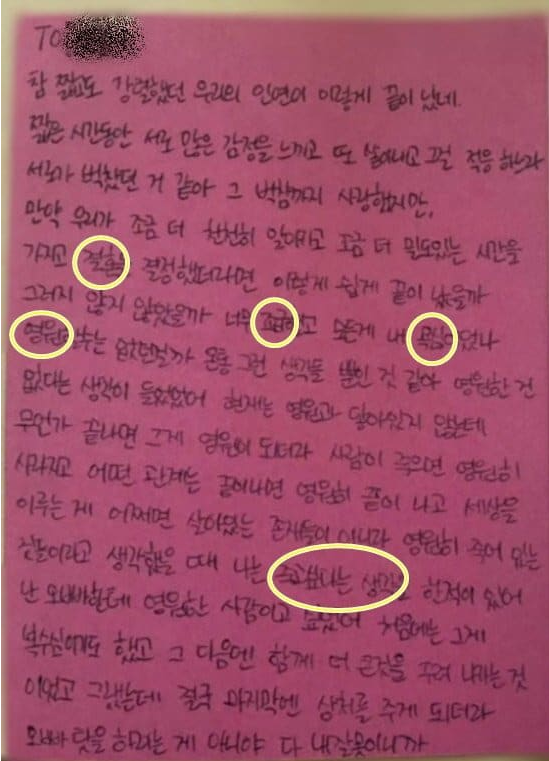 TO
참 짧고도 강렬했던 우리의 인연이 이렇게 끝이 났네.
짧은 시간동안 서로 많은 감정을 느끼고 또 쏟아내고 그걸 적응하느라
서로가 벅찼던 거 같아 그 벅참까지 사랑했지만,
만약 우리가 조금 더 천천히 알아가고 조금 더 밀도있는 시간을
가지고 결혼을 결정했더라면 이렇게 쉽게 끝이 났을까
그러지 않지 않았을까 너무 조급하고 모든게 내 욕심이었나
영원할 수는 없었던걸까 온통 그런 생각들 뿐인 것 같아 영원한 건
없다는 생각이 들었었어 현재는 영원과 닿아있지 않는데
무언가 끝나면 그게 영원이 되더라 사람이 죽으면 영원히
사라지고 어떤 관계는 끝이나면 영원히 끝이 나고 세상을
이루는 게 어쩌면 살아있는 존재들이 아니라 영원히 죽어 있는
것들이라고 생각했을 때 나는 죽고싶다는 생각을 한적이 있어
난 오빠한테 영원한 사람이고 싶었어 처음에는 그게
복수심이기도 했고 그 다음엔 함께 더 큰것을 꾸려 나가는 것
이었고 그랬는데 결국 마지막엔 상처를 주게 되더라
오빠 탓을 하려는 게 아니야 다 내 잘못이니까